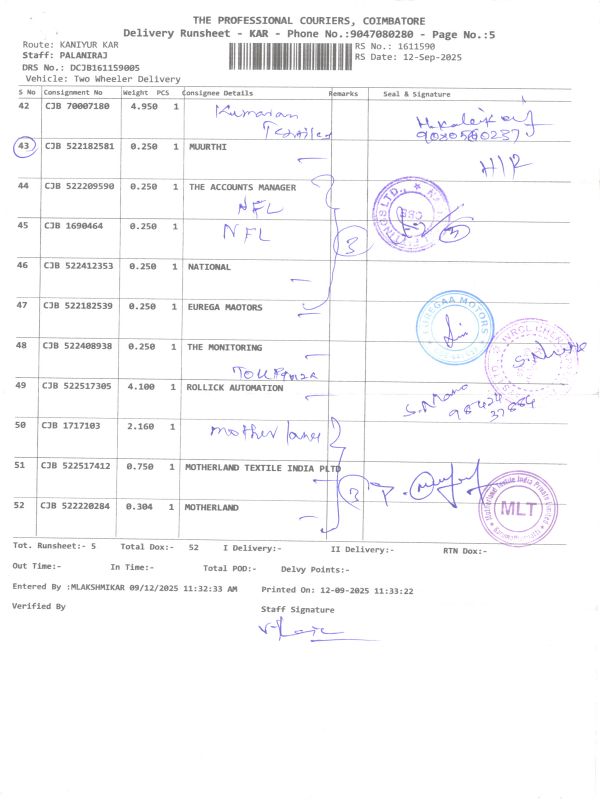 THE PROFESSIONAL COURIERS, COIMBATORE
Delivery Runsheet - KAR - Phone No.:9047080280 - Page No.:5
Route: KANIYUR KAR
RS No.: 1611590
Staff: PALANIRAJ
RS Date: 12-Sep-2025
DRS No.: DCJB161159005
Vehicle: Two Wheeler Delivery
S No Consignment No Weight PCS Consignee Details Remarks Seal & Signature
42 CJB 70007180 4.950 1 Kumaran
9020560237
43 CJB 522182581 0.250 1 MUURTHI
H/R
44 CJB 522209590 0.250 1 THE ACCOUNTS MANAGER
NFL
45 CJB 1690464 0.250 1 NFL
3
3
46 CJB 522412353 0.250 1 NATIONAL
47 CJB 522182539 0.250 1 EUREGA MAOTORS
EUREGAA MOTORS
48 CJB 522408938 0.250 1 THE MONITORING
49 CJB 522517305 4.100 1 ROLLICK AUTOMATION
S. Mano
50 CJB 1717103 2.160 1 Mother land
51 CJB 522517412 0.750 1 MOTHERLAND TEXTILE INDIA PLTD
3
Motherland Textile India Private Limited
MLT
52 CJB 522220284 0.304 1 MOTHERLAND
Tot. Runsheet:- 5 Total Dox:- 52 I Delivery:- II Delivery:- RTN Dox:-
Out Time:- In Time:- Total POD:- Delvy Points:-
Entered By :MLAKSHMIKAR 09/12/2025 11:32:33 AM Printed On: 12-09-2025 11:33:22
Verified By Staff Signature